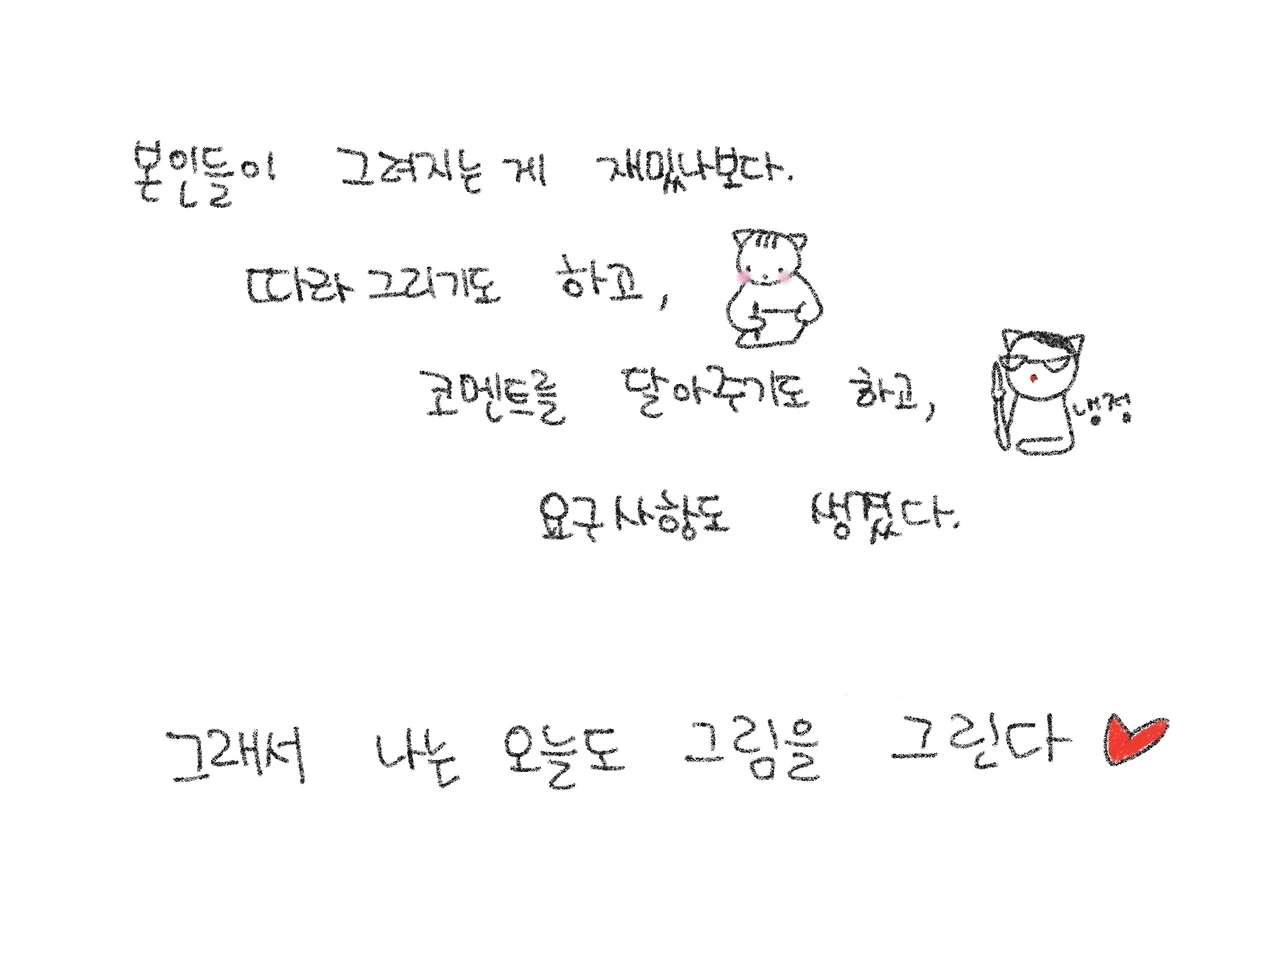 본인들이 그려지는 게 재밌나보다.
따라 그리기도 하고,
코멘트를 달아주기도 하고,
냉정
요구사항도 생겼다.
그래서 나는 오늘도 그림을 그린다